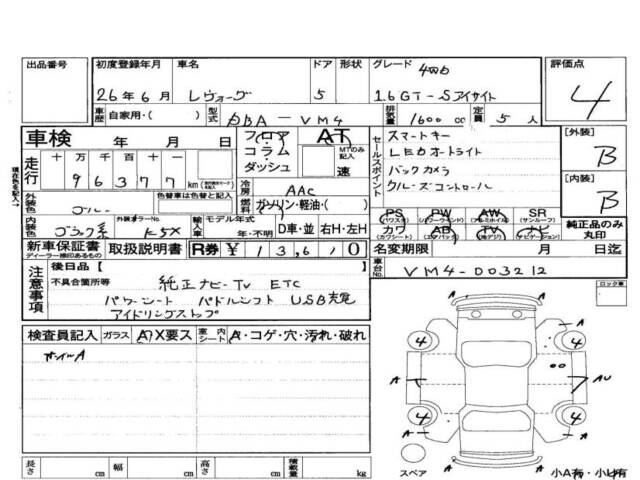 出品番号 初度登録年月 車名 ドア 形状 グレード 評価点
4WD
26年6月 レヴォーグ 5 1.6GT-Sアイサイト 4
車歴 自家用・( ) 型式 DBA-VM4 排気量 1600cc 定員 5人
車検 年 月 日 フロア コラム ダッシュ AT MTのみ記入 速
走行 十万 万 千 百 十 一
96377 km
セールスポイント
スマートキー
LEDオートライト
バックカメラ
クルーズコントロール
[外装] B
[内装] B
純正品のみ丸印
冷房 AAC
外装色 ブルー 色替車は色替と記入
燃料 ガソリン・軽油・( )
PS (パワステ) PW (パワーウインド) AW (アルミホイル) SR (サンルーフ)
カワ (カワシート) AB (エアバック) TV (テレビ) ナビ (ナビゲーション)
内装色 ブラック系 外装カラーNo. K5X 輸入車 モデル年式 年・不明 D車・並 右H・左H
新車保証書 ディーラー捺印あるもの 取扱説明書 R券 ¥13,610
名変期限 月 日迄
車台No. VM4-003212
現在色を記入
注意事項
後日品【
不具合箇所等 純正ナビ-TV ETC
パワーシート パドルシフト USB充電
アイドリングストップ
ロック車
検査員記入 ガラス A・X要ス 室内シート A・コゲ・穴・汚れ・破れ
ホイルA
A
4 4
A A
4 4
A A
スペア
長さ cm 幅 cm 高さ cm 積載量 kg
小A有・小U有